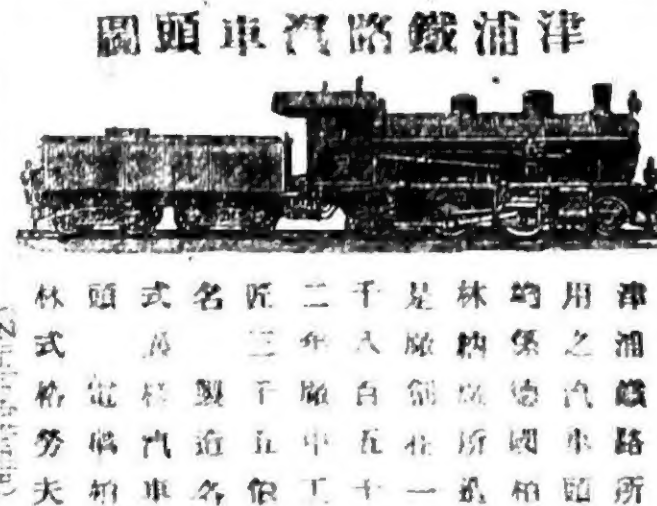 津浦鐵路汽車頭圖
津浦鐵路所
用之汽車頭
均係德國柏
林納廠所造
是廠創在一
千八百五十
二年廠中工
匠三千五伯
名製造各
式汽車
頭電機柏
林式格勞夫